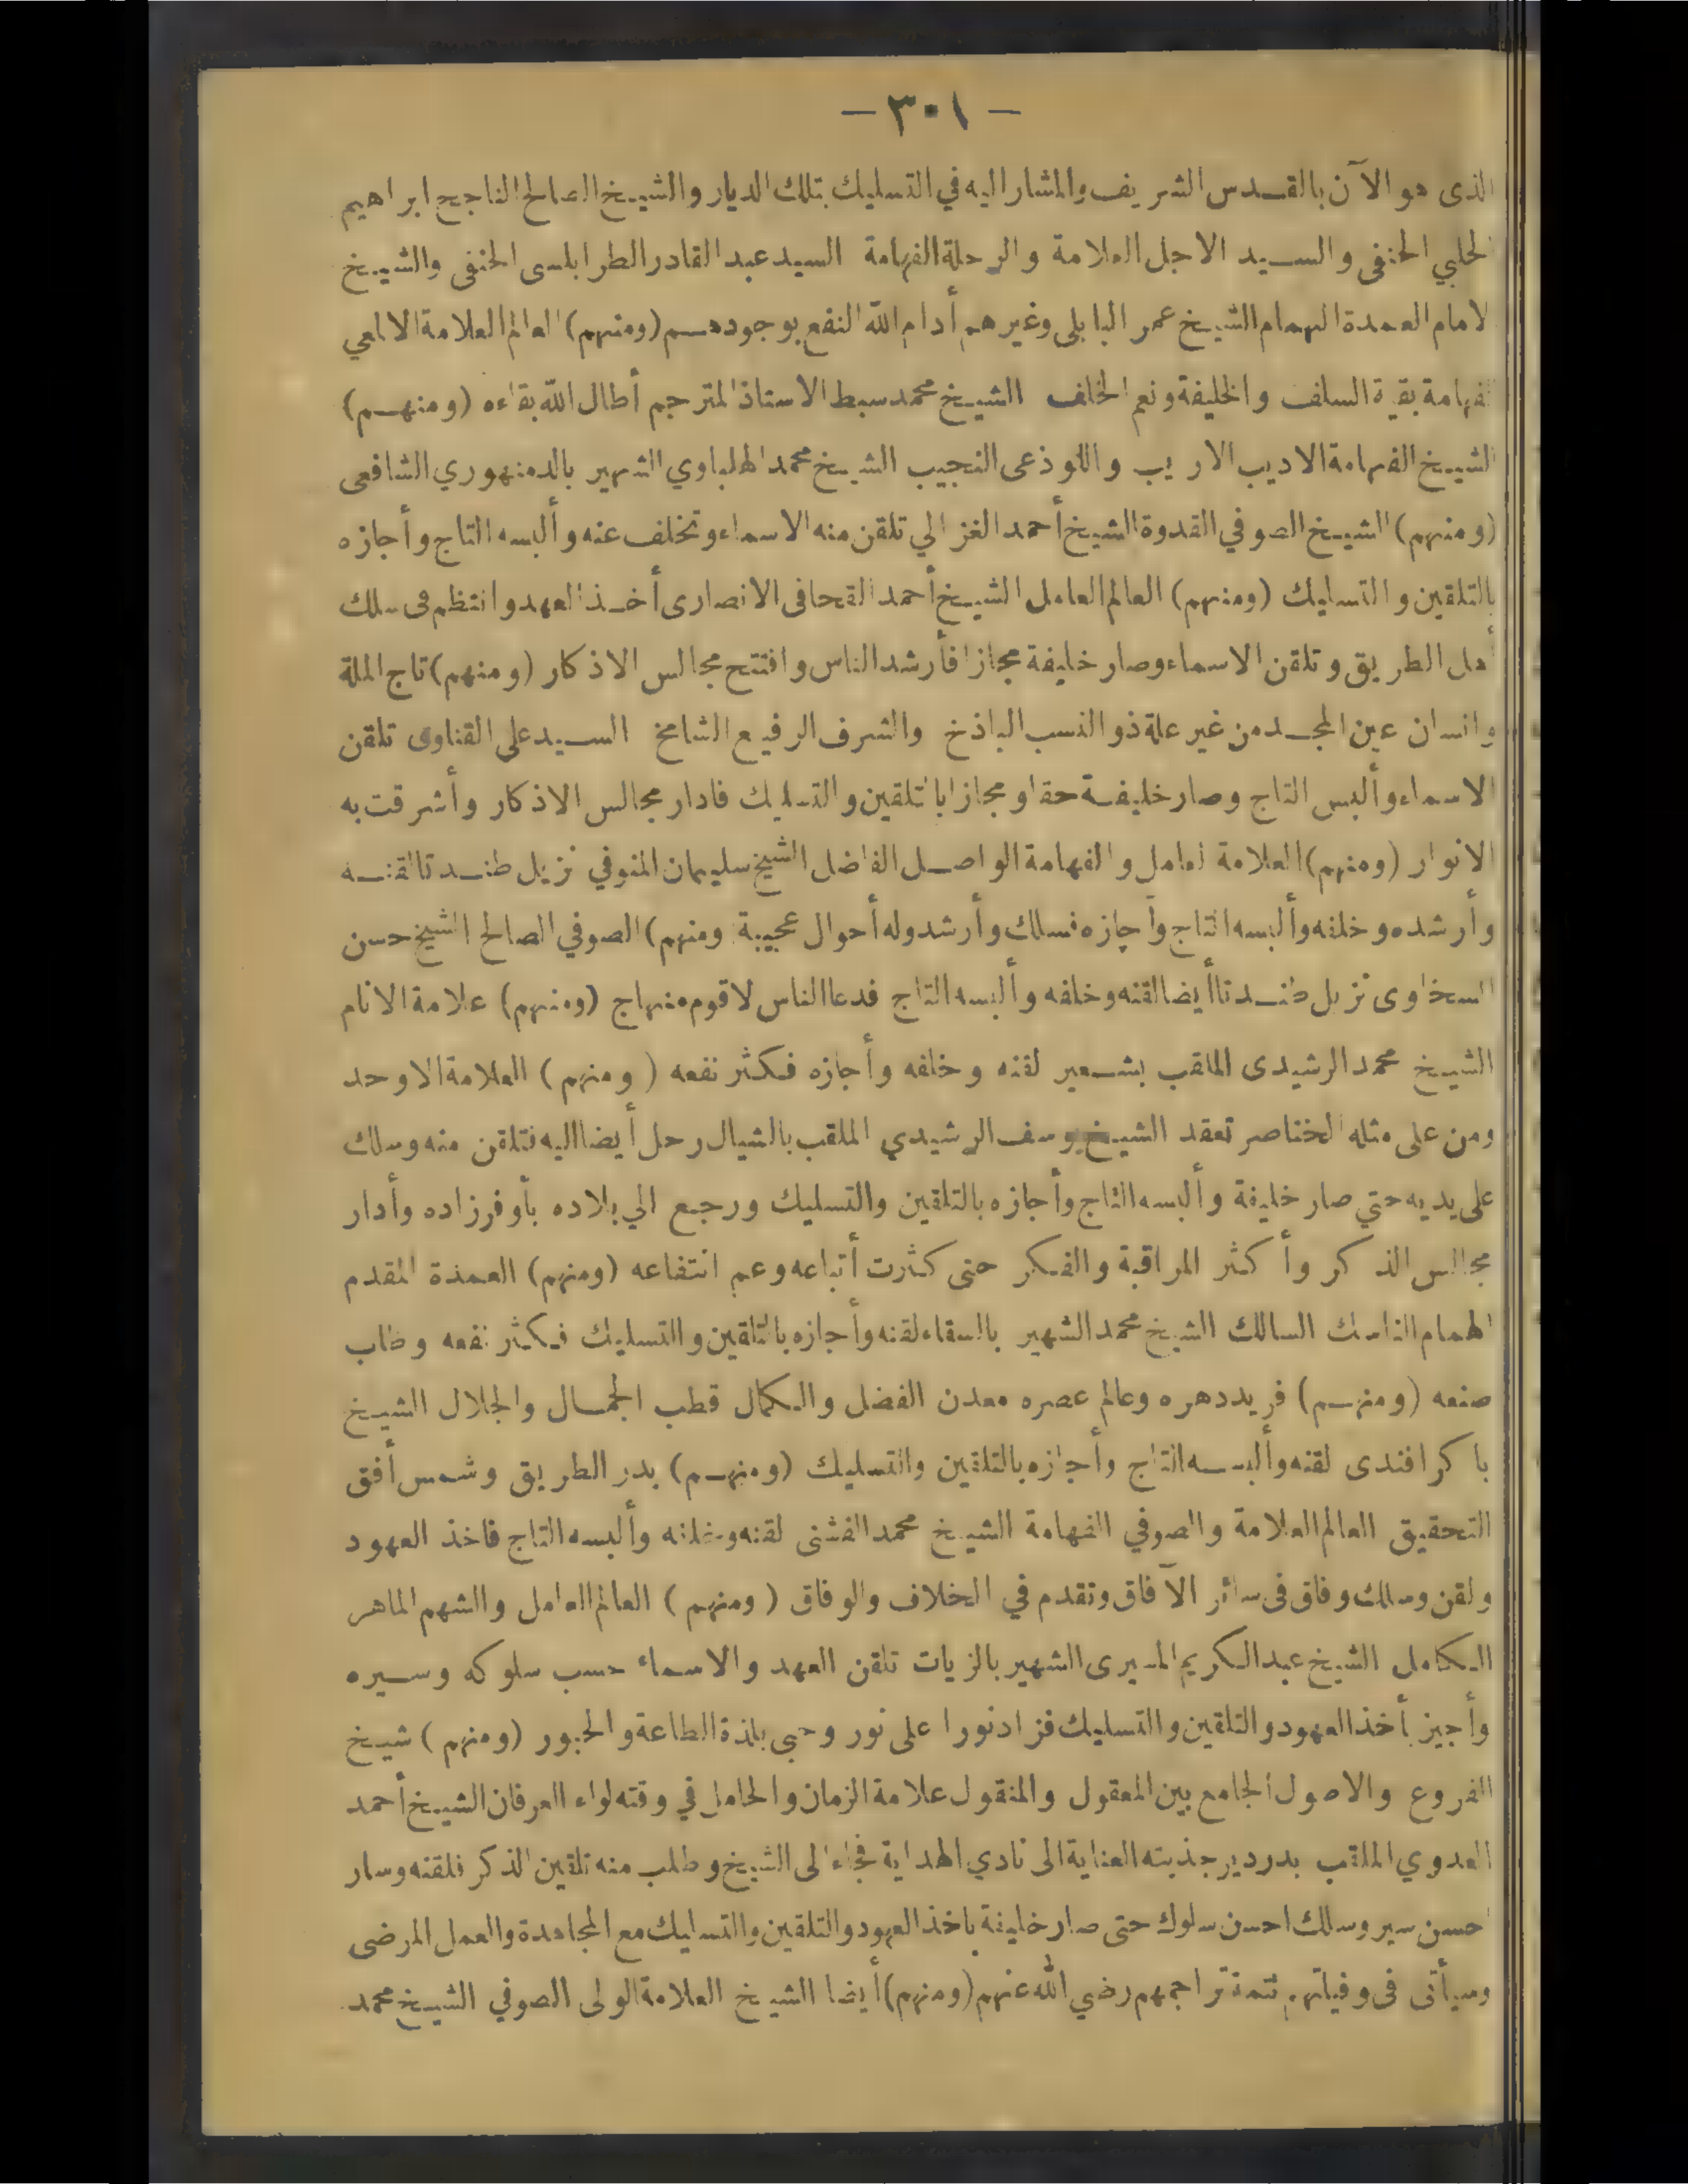 — ٣٠١ —
الذى هو الآن بالقدس الشريف والمشار اليه في التسليك بتلك الديار والشيخ الصالح الناجح ابراهيم
الحلبي الحنفى والسيد الاجل العلامة والرحلة الفهامة السيد عبد القادر الطرابلسى الحنفى والشيخ
الامام العمدة الهمام الشيخ عمر البابلى وغيرهم أدام الله النفع بوجودهم (ومنهم) العالم العلامة الالمعي
الفهامة بقية السلف والخليفة ونعم الخلف الشيخ محمد سبط الاستاذ المترجم أطال الله بقاءه (ومنهم)
الشيخ الفهامة الاديب الاريب واللوذعى النجيب الشيخ محمد الهلباوي الشهير بالدمنهوري الشافعى
(ومنهم) الشيخ الصوفي القدوة الشيخ أحمد الغزالي تلقن منه الاسماء وتخلف عنه وألبسه التاج وأجازه
بالتلقين والتسليك (ومنهم) العالم العامل الشيخ أحمد القحافى الانصارى أخذ العهد وانتظم فى سلك
أهل الطريق وتلقن الاسماء وصار خليفة مجازا فأرشد الناس وافتتح مجالس الاذكار (ومنهم) تاج الملة
وانسان عين المجد من غير علة ذو النسب الباذخ والشرف الرفيع الشامخ السيد على القناوى تلقن
الاسماء وألبس التاج وصار خليفة حقا ومجازا بالتلقين والتسليك فادار مجالس الاذكار وأشرقت به
الانوار (ومنهم) العلامة العامل والفهامة الواصل الفاضل الشيخ سليمان المنوفي نزيل طندتا لقنه
وأرشده وخلفه وألبسه التاج وأجازه فسلك وأرشد وله أحوال عجيبة (ومنهم) الصوفي الصالح الشيخ حسن
السخاوى نزيل طندتا أيضا لقنه وخلفه وألبسه التاج فدعا الناس لاقوم منهاج (ومنهم) علامة الانام
الشيخ محمد الرشيدى الملقب بشعير لقنه وخلفه وأجازه فكثر نفعه (ومنهم) العلامة الاوحد
ومن على مثله الخناصر تعقد الشيخ يوسف الرشيدي الملقب بالشيال رحل أيضا اليه فتلقن منه وسلك
على يديه حتي صار خليفة وألبسه التاج وأجازه بالتلقين والتسليك ورجع الي بلاده بأوفر زاده وأدار
مجالس الذكر وأكثر المراقبة والفكر حتى كثرت أتباعه وعم انتفاعه (ومنهم) العمدة المقدم
الهمام الناسك السالك الشيخ محمد الشهير بالسقاء لقنه وأجازه بالتلقين والتسليك فكثر نفعه وطاب
صنعه (ومنهم) فريد دهره وعالم عصره معدن الفضل والكمال قطب الجمال والجلال الشيخ
باكر افندى لقنه وألبسه التاج وأجازه بالتلقين والتسليك (ومنهم) بدر الطريق وشمس أفق
التحقيق العالم العلامة والصوفي الفهامة الشيخ محمد الفشنى لقنه وخلفه وألبسه التاج فاخذ العهود
ولقن وسلك وفاق فى سائر الآفاق وتقدم في الخلاف والوفاق (ومنهم) العالم العامل والشهم الماهر
الكامل الشيخ عبد الكريم المسيرى الشهير بالزيات تلقن العهد والاسماء حسب سلوكه وسيره
وأجيز بأخذ العهود والتلقين والتسليك فزاد نورا على نور وحبى بلذة الطاعة والحبور (ومنهم) شيخ
الفروع والاصول الجامع بين المعقول والمنقول علامة الزمان والحامل في وقته لواء العرفان الشيخ أحمد
العدوي الملقب بدردير جذبته العناية الى نادي الهداية فجاء الى الشيخ وطلب منه تلقين الذكر فلقنه وسار
احسن سير وسلك احسن سلوك حتى صار خليفة باخذ العهود والتلقين والتسليك مع المجاهدة والعمل المرضى
وسيأتى فى وفياتهم تتمة تراجمهم رضي الله عنهم (ومنهم) أيضا الشيخ العلامة الولى الصوفي الشيخ محمد